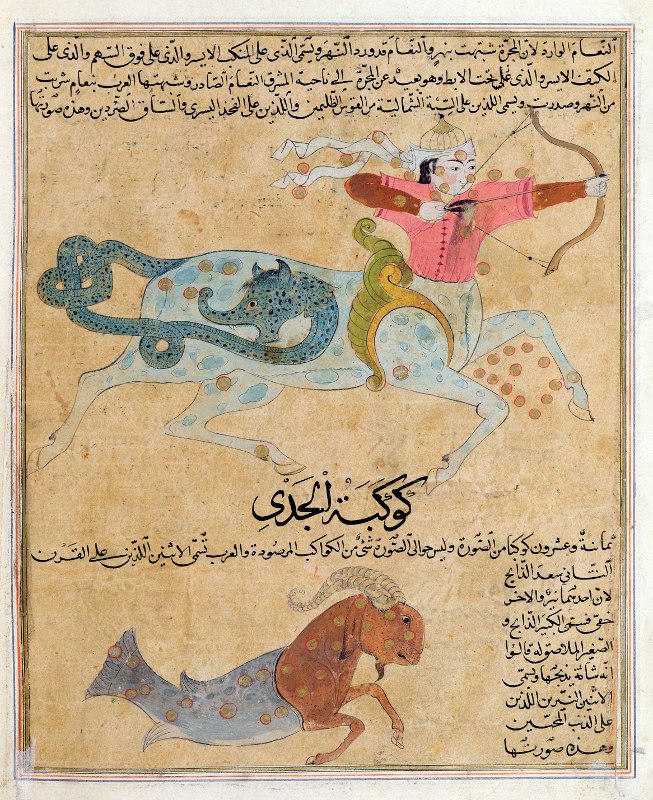 النعام الوارد لان المجرة شبهت بنهر والنعام قد ورد النهر ويسمى الذى على المنكب الايسر والذى على فوق السهم والذى على
الكتف الايسر والذى على تحت الابط وهو بعيد عن المجرة الى ناحية المشرق النعام الصادر وشبهتها العرب بنعام شربت
من النهر وصدرت ويسمى اللذين على السية الشمالية من القوس الظليمين واللذين على الفخذ اليسرى والساق الصردين وهذه صورتها
كوكبة الجدى
ثمانية وعشرون كوكبا من الصورة وليس حوالى الصورة شئ من الكواكب المرصودة والعرب تسمى الاثنين اللذين على القرن
الثانى سعد الذابح
لان احدهما نير والاخر
خفى فسمى الكبير الذابح و
الصغير الملاصق له قالوا
انه شاته يذبحها ويسمى
الاثنين النيرين اللذين
على الذنب المحبين
وهذه صورتها